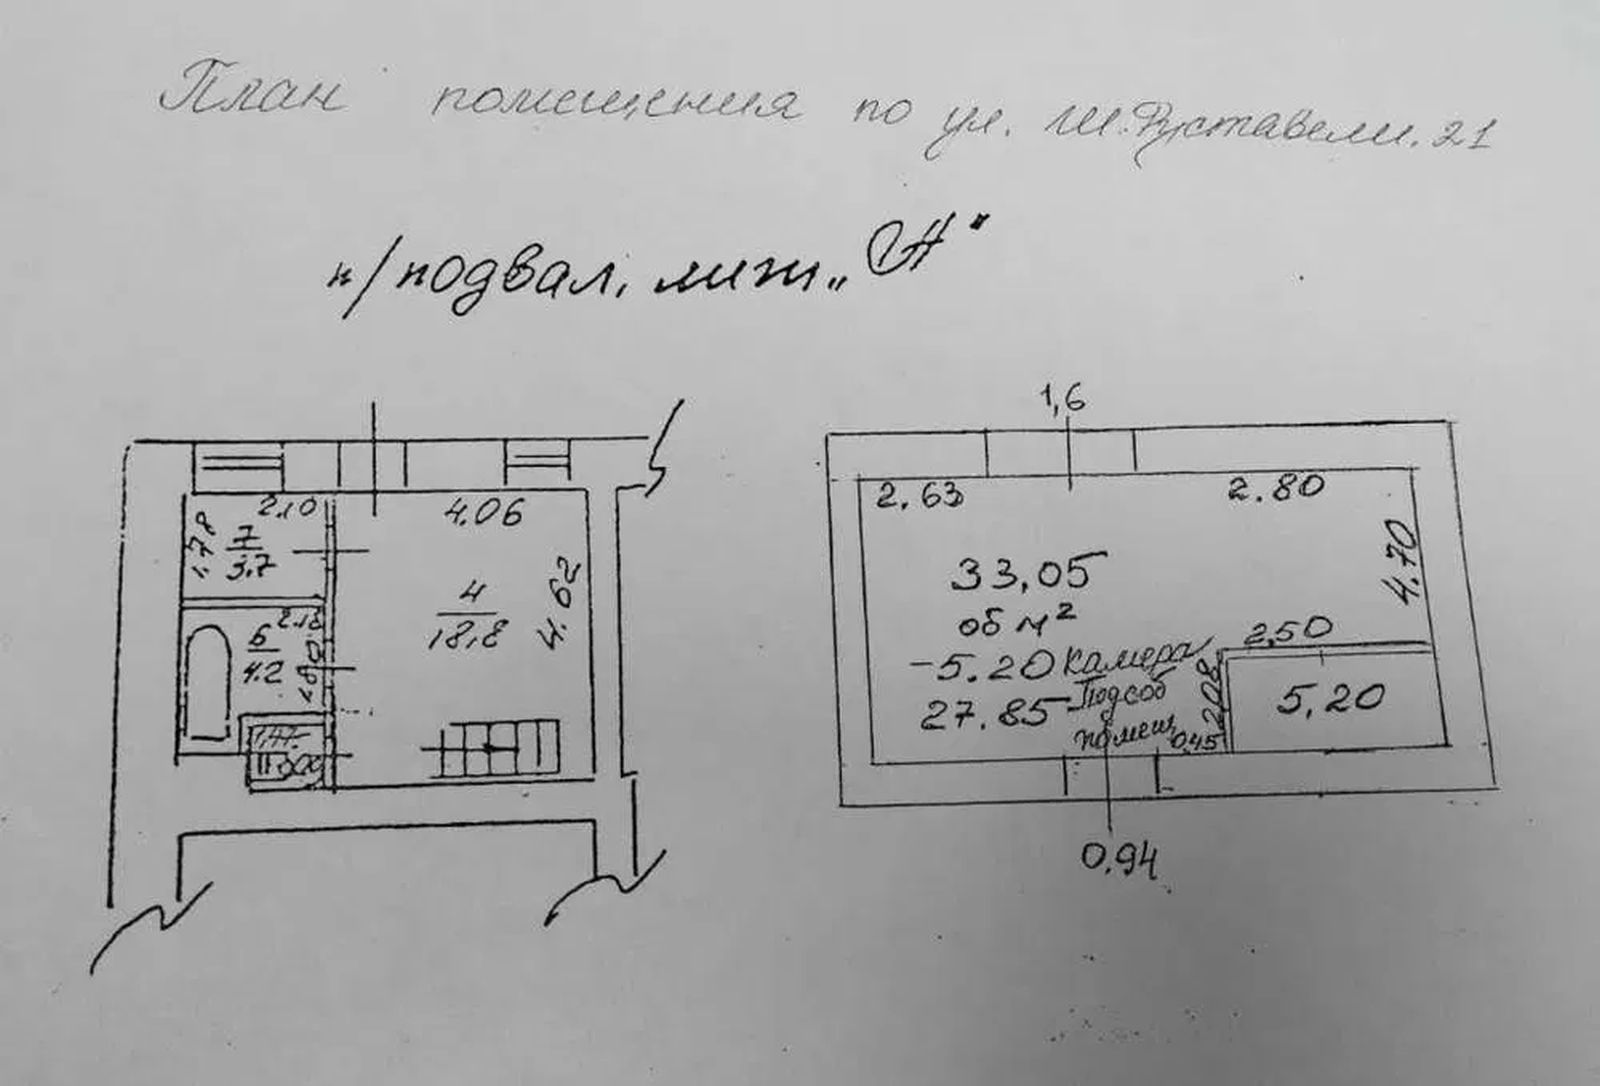 План помещения по ул. Ш.Руставели.21
п/подвал, лит „Н"
2.10
4.06
1.78
7
3.7
4
18,8
4.62
2.18
6
4.2
1.80
1,6
2.63
2.80
4.70
33,05
об м²
-5.20 Камера
27.85 Подсоб
помещ
2,50
2,08
5,20
0.45
0.94